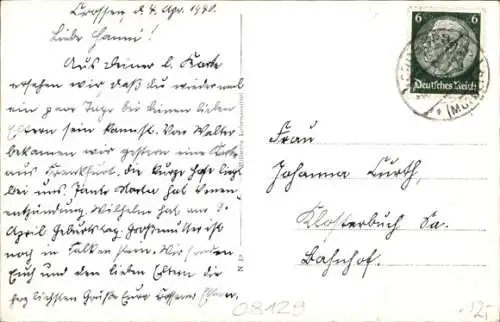 Crossen, d. 4. Apr. 1940.
Liebe Hanni!
Aus Deiner l. Karte
ersehen wir daß du wieder mal
ein paar Tage bei deinen lieben
Eltern sein kannst. Von Walter
bekamen wir gestern eine Karte
aus Frankfurt. die kurze Hose liegt
bei uns. Tante Martha hat Venen
entzündung. Wilhelm hat am 9.
April Geburtstag. Großmutter ist
noch in Falkenstein. Wir senden
Euch und den lieben Eltern die
herzlichsten Grüße Eure Crossener Eltern.
6 6
Deutsches Reich
(Mark)
Frau
Johanna Curth,
Klosterbuch Sa.
Bahnhof.
08129
12,-